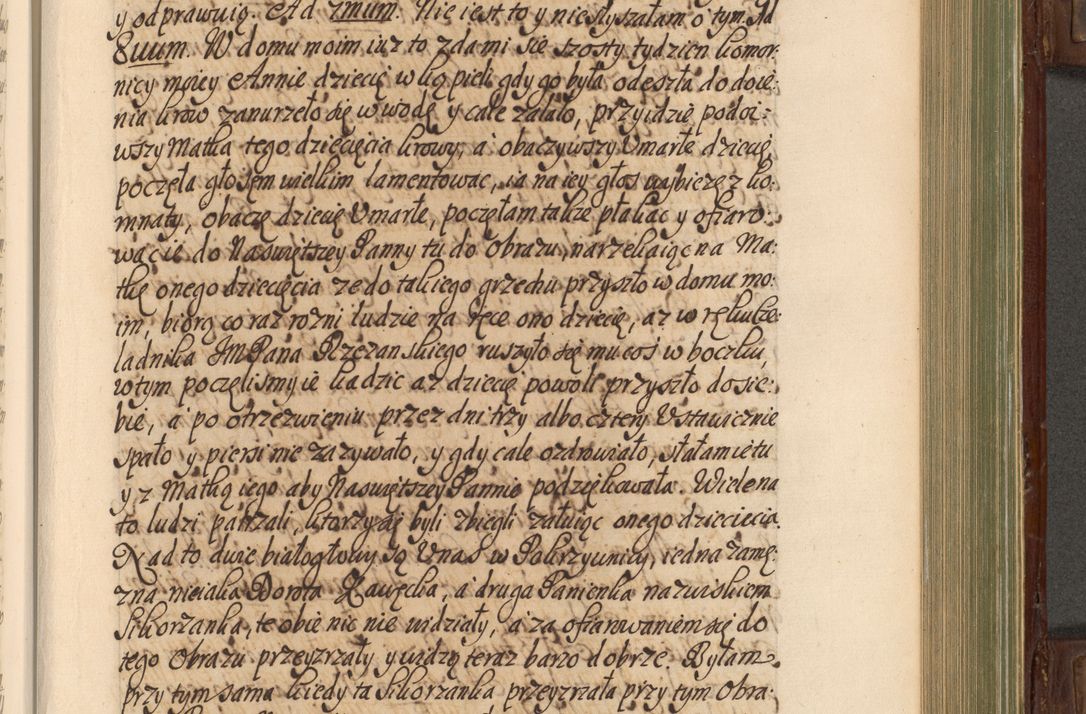 y odprawuią. Ad 7mum. Nie iest to y nie słyszałam o tym. Ad
8uum. W domu moim iuz to zda mi się szosty tydzien komor:
nicy moiey Annie dziecię w kąpieli gdy go była odeszła do doie:
nia krow zanurzeło się w wodę y cale zalało, przyidzie podoi:
wszy Matka tego dziecięcia krowy, a obaczywszy Umarłe dziecię,
poczęła głosem wielkim lamentowac, ia na iey głos wybiezę z ko:
mnaty, obaczę dziecię Umarłe, poczęłam takze płakac y ofiaro:
wac ie do Naswiętszey Panny tu do Obrazu, narzekaiąc na Ma:
tkę onego dziecięcia ze do takiego grzechu przyszło w domu mo:
im, biorą coraz rozni ludzie na ręce ono dziecię, az w ręku cze:
ladnika JMPana Rzezanskiego ruszyło się mu cos w boczku,
w tym poczęlismy ie kadzic az dziecię powoli przyszło do sie:
bie, a po otrzezwieniu przez dni trzy albo cztery Ustawicznie
spało y piersi nie zazywało, y gdy cale ozdrowiało, słałam ie tu
y z Matką iego aby Naswiętszey Pannie podziękowała. Wiele na
to ludzi patrzali, ktorzy się byli zbiegli załuiąc onego dziecięcia.
Nad to dwie białogłowy są Unas w Pokrzywnicy, iedna zamę:
zna nieiaka Dorota Zawęcka, a druga Panienka nazwiskiem
Sikorzanka, te obie nic nie widziały, a za ofiarowaniem się do
tego Obrazu przeyzrzały y widzą teraz barzo dobrze. Byłam
przy tym sama kiedy ta Sikorzanka przeyzrzała przy tym Obra: